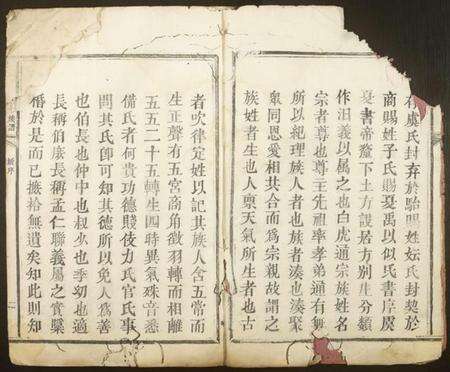 虞氏封弃於駘賜姓姬氏封契於
商賜姓子氏賜夏禹以似氏書序虞
夏書帝釐下土方設居方別生分類
作汨義以属之也白虎通宗族姓名
宗者尊也尊王先祖率孝弟通有無
所以紀理族人者也族者湊也湊聚
衆同恩愛相共合而爲宗親故謂之
族姓者生也人稟天氣所生者也古
者吹律定姓以記其族人含五常而
生正聲有五宮商角徵羽轉而相雜
五五二十五轉生四時異氣殊音悉
備氏者何貴功德賤伎力氏官氏事
聞其氏卽可知其德所以免人爲善
也伯長也仲中也叔少也季幼也適
長稱伯庶長稱孟仁聯義屬之實槩
備於是而已摭拾無遺矣知此則知
族譜 新序